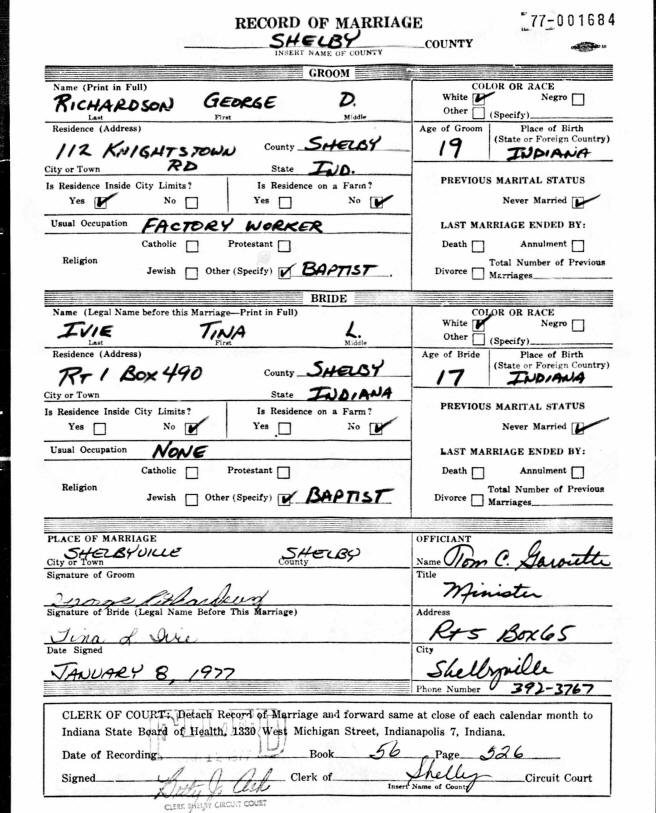 RECORD OF MARRIAGE
77-001684
SHELBY COUNTY
INSERT NAME OF COUNTY
GROOM
Name (Print in Full)
RICHARDSON GEORGE D.
Last First Middle
COLOR OR RACE
White Negro
Other (Specify)
Residence (Address)
112 KNIGHTSTOWN RD
County SHELBY
City or Town
State IND.
Age of Groom
19
Place of Birth
(State or Foreign Country)
INDIANA
Is Residence Inside City Limits?
Yes No
Is Residence on a Farm?
Yes No
PREVIOUS MARITAL STATUS
Never Married
Usual Occupation FACTORY WORKER
LAST MARRIAGE ENDED BY:
Religion
Catholic Protestant
Jewish Other (Specify) BAPTIST
Death Annulment
Divorce Total Number of Previous
Marriages
BRIDE
Name (Legal Name before this Marriage—Print in Full)
IVIE TINA L.
Last First Middle
COLOR OR RACE
White Negro
Other (Specify)
Residence (Address)
RT 1 BOX 490
County SHELBY
City or Town
State INDIANA
Age of Bride
17
Place of Birth
(State or Foreign Country)
INDIANA
Is Residence Inside City Limits?
Yes No
Is Residence on a Farm?
Yes No
PREVIOUS MARITAL STATUS
Never Married
Usual Occupation NONE
LAST MARRIAGE ENDED BY:
Religion
Catholic Protestant
Jewish Other (Specify) BAPTIST
Death Annulment
Divorce Total Number of Previous
Marriages
PLACE OF MARRIAGE
SHELBYVILLE SHELBY
City or Town County
Signature of Groom
George Richardson
Signature of Bride (Legal Name Before This Marriage)
Tina L Ivie
Date Signed
JANUARY 8, 1977
OFFICIANT
Name Tom C. Garoutte
Title
Minister
Address
Rt 5 Box 65
City
Shelbyville
Phone Number 392-3767
CLERK OF COURT: Detach Record of Marriage and forward same at close of each calendar month to
Indiana State Board of Health, 1330 West Michigan Street, Indianapolis 7, Indiana.
Date of Recording Book 56 Page 526
Signed Betty J. Ash Clerk of Shelby Circuit Court
Insert Name of County
CLERK SHELBY CIRCUIT COURT